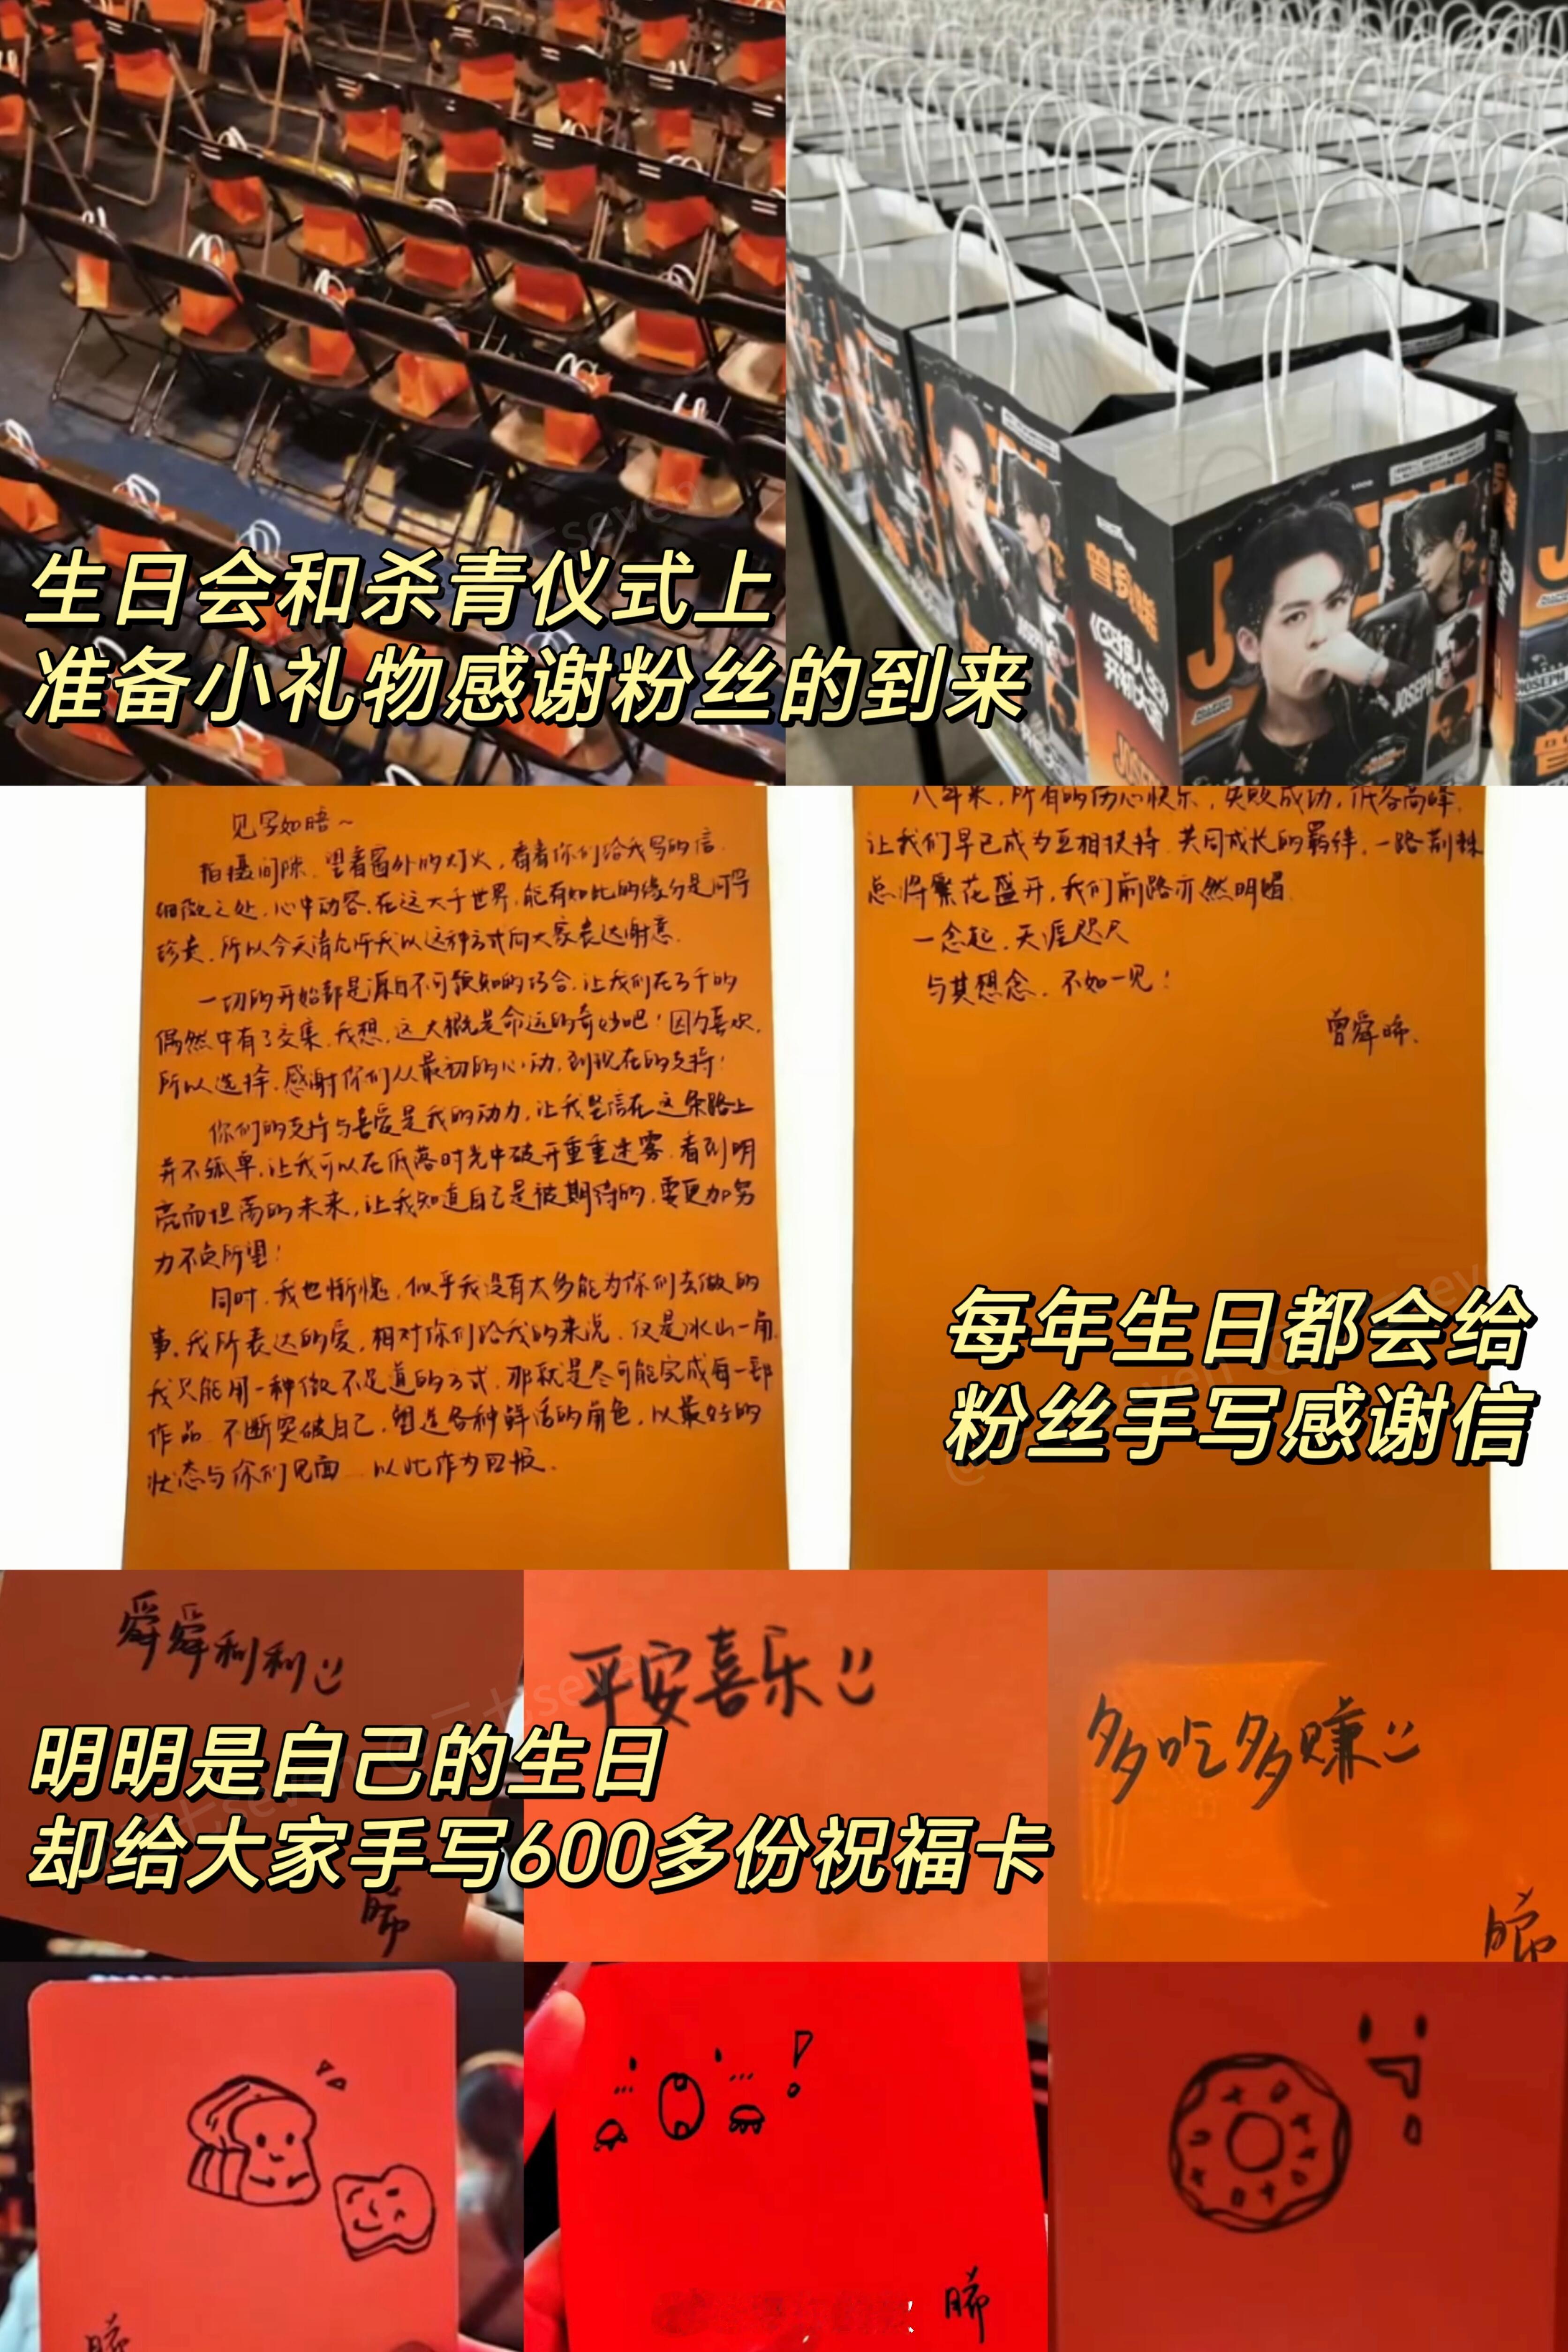 生日会和杀青仪式上
准备小礼物感谢粉丝的到来
曾舜晞
JOSEPH
见字如晤~
拍摄间隙,望着窗外的灯火,看着你们给我写的信.
细微之处,心中动容.在这大千世界,能有如此的缘分是何等
珍贵.所以今天请允许我以这种方式向大家表达谢意.
一切的开始都是源自不可预知的巧合.让我们在万千的
偶然中有了交集.我想,这大概是命运的奇妙吧!因为喜欢,
所以选择.感谢你们从最初的心动,到现在的支持!
你们的支持与喜爱是我的动力,让我坚信在这条路上
并不孤单.让我可以在低落时光中破开重重迷雾,看到明
亮而坦荡的未来,让我知道自己是被期待的,要更加努
力不负所望!
同时,我也惭愧,似乎我没有太多能为你们去做的
事.我所表达的爱,相对你们给我的来说,仅是冰山一角.
我只能用一种微不足道的方式,那就是尽可能完成每一部
作品 不断突破自己,塑造各种鲜活的角色,以最好的
状态与你们见面 以此作为回报.
八年来,所有的伤心快乐,失败成功,低谷高峰,
让我们早已成为互相扶持 共同成长的羁绊.一路荆棘
总将繁花盛开,我们前路亦然明媚.
一念起,天涯咫尺
与其想念,不如一见!
曾舜晞.
每年生日都会给
粉丝手写感谢信
舜舜利利
平安喜乐
多吃多赚
明明是自己的生日
却给大家手写600多份祝福卡
晞
晞
晞
晞